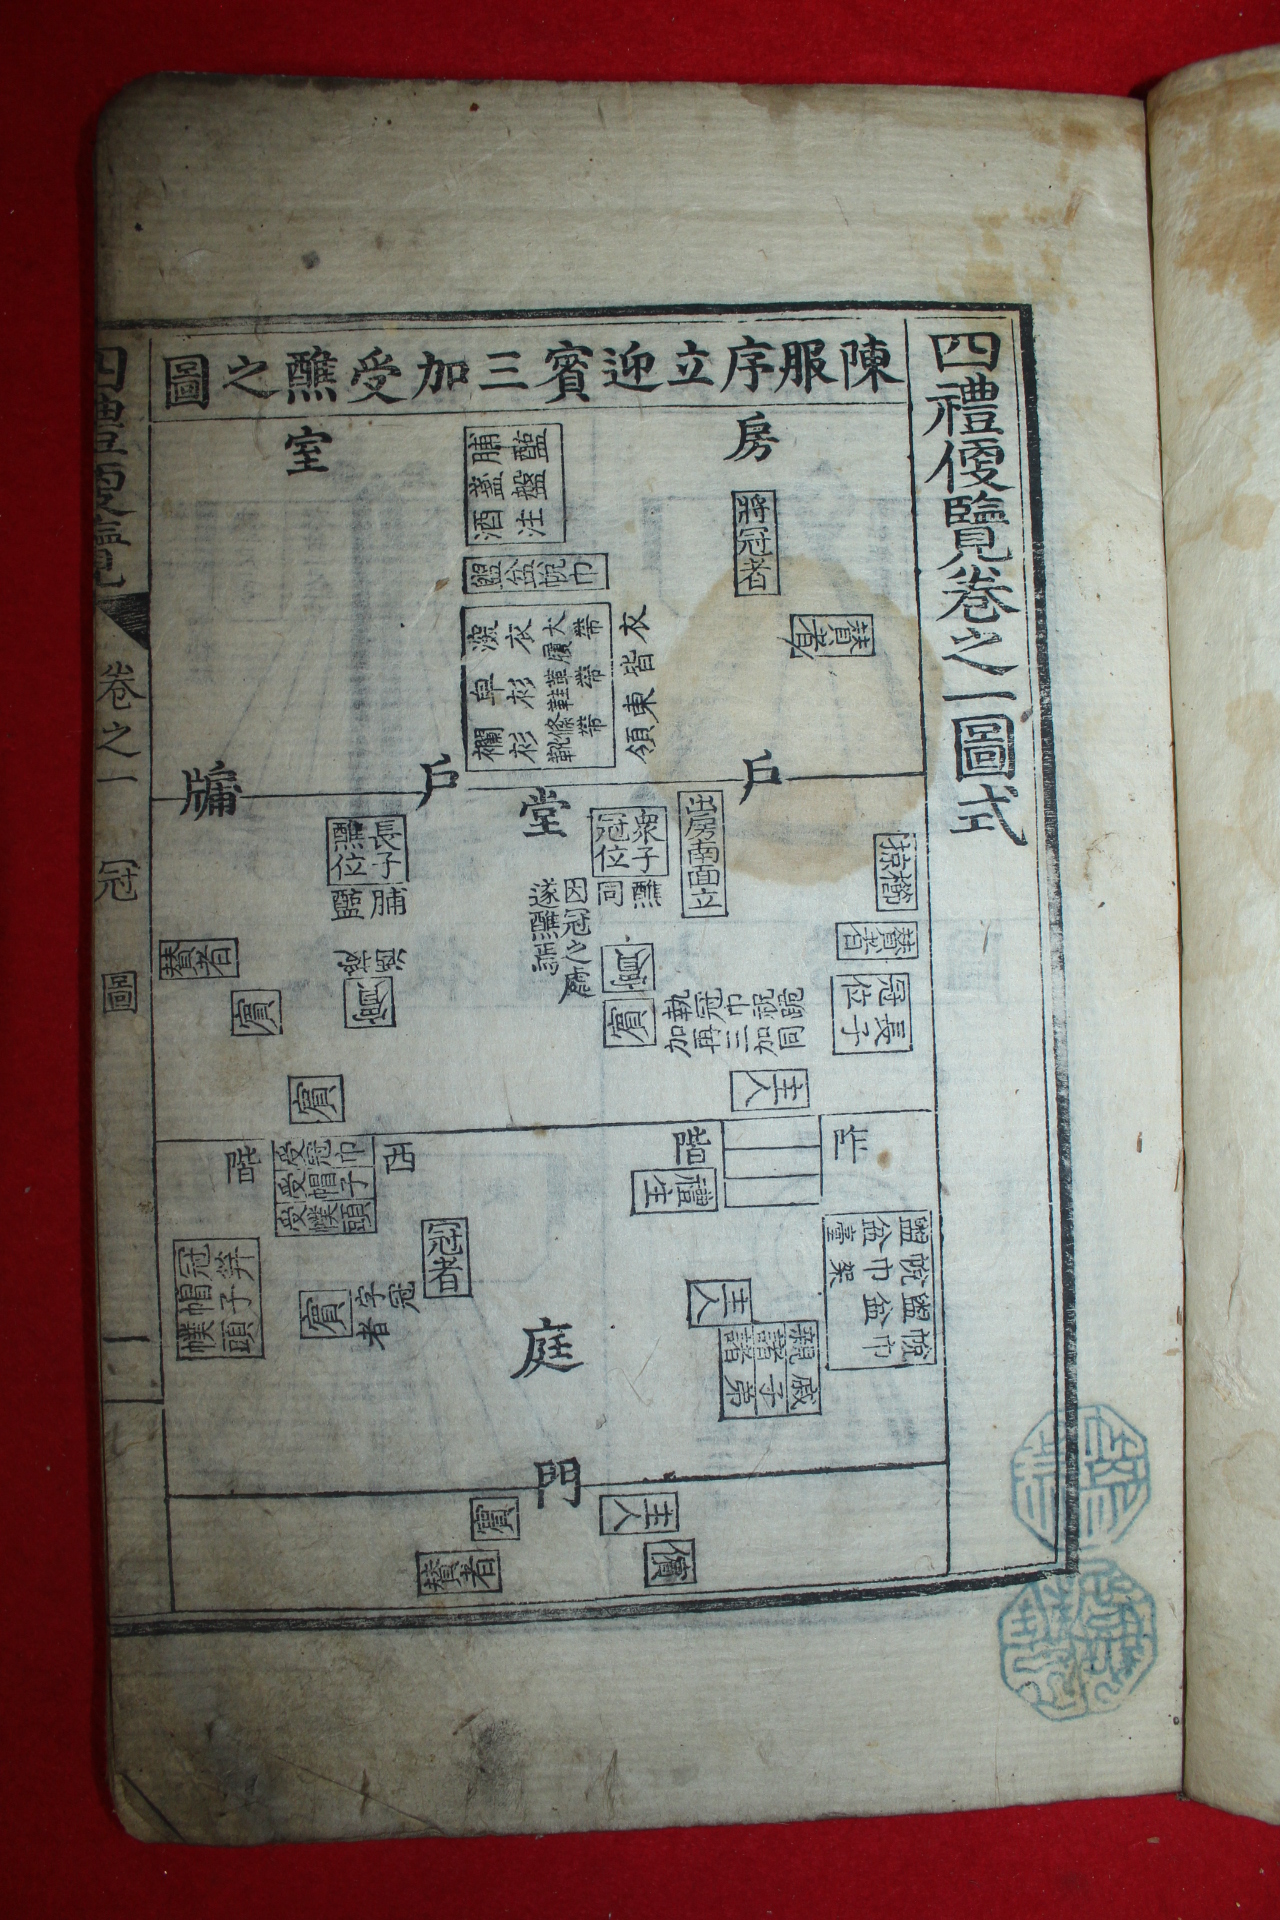 四禮便覽卷之一圖式
陳服序立迎賓三加受醮之圖
房
將冠者
贊者
脯醢
盞盤
酒注
盥盆帨巾
深衣大帶
皁衫
襴衫
衣皆東領
室
戶
戶
牖
堂
出房南面立
衆子冠位
醮同
因冠之處遂醮焉
長子醮位
脯醢
掠櫛
贊者
長子冠位
賓
執冠巾祝跪
加再三加同
主人
賓
賓
贊者
阼
階
禮生
西
階
受冠巾
受帽子
受幞頭
冠笄
帽子
幞頭
冠者
賓
字冠者
主人
親戚
諸子
諸弟
盥盆臺
帨巾架
盥盆
帨巾
庭
門
賓
贊者
主人
儐
四禮便覽
卷之一
冠
圖
一